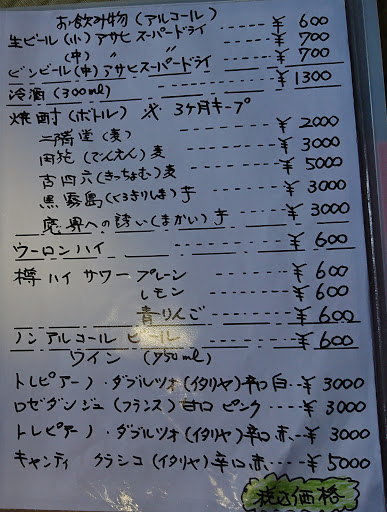 お飲み物(アルコール)
生ビール(小)アサヒ スーパードライ ---- ¥ 600
(中) 〃 ---- ¥ 700
ビンビール(中)アサヒスーパードライ ¥ 700
冷酒(300ml) ---- ¥ 1300
焼酎(ボトル) ※ 3ヶ月キープ
二階堂(麦) ---- ¥ 2000
円苑(でんえん)麦 ---- ¥ 3000
吉四六(きっちょむ)麦 ---- ¥ 5000
黒霧島(くろきりしま)芋 ---- ¥ 3000
魔界への誘い(まかい)芋 ---- ¥ 3000
ウーロンハイ ---- ¥ 600
樽ハイ サワー プレーン ---- ¥ 600
レモン ---- ¥ 600
青りんご ---- ¥ 600
ノンアルコール ビール ---- ¥ 600
ワイン (750ml)
トレビアーノ・ダブルツォ(イタリヤ)辛口 白 -- ¥ 3000
ロゼダンジュ(フランス)甘口 ピンク ---- ¥ 3000
トレビアーノ・ダブルツォ(イタリヤ)辛口 赤 -- ¥ 3000
キャンティ クラシコ(イタリヤ)辛口 赤 -- ¥ 5000
税込価格